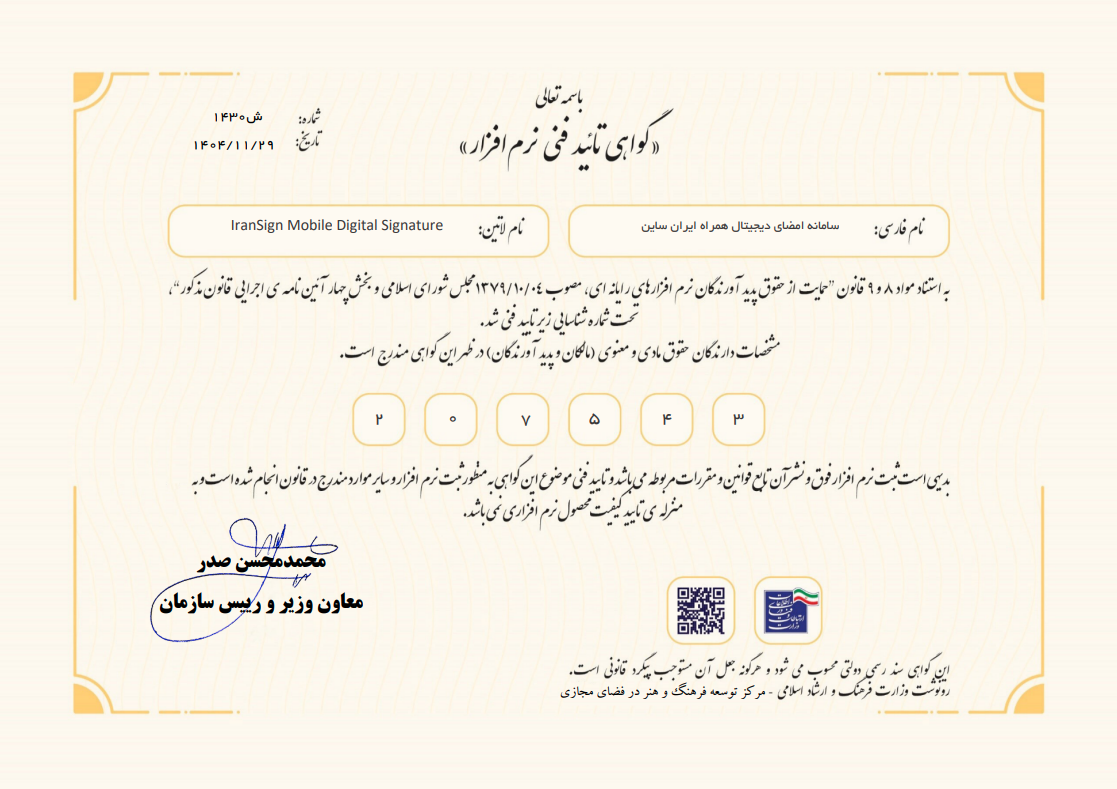 باسمه تعالی
«گواهی تائید فنی نرم افزار»
شماره: ش۱۴۳۰
تاریخ: ۱۴۰۴/۱۱/۲۹
نام فارسی: سامانه امضای دیجیتال همراه ایران ساین
نام لاتین: IranSign Mobile Digital Signature
به استناد مواد ۸ و ۹ قانون "حمایت از حقوق پدید آورندگان نرم افزارهای رایانه ای، مصوب ۱۳۷۹/۱۰/۰۴ مجلس شورای اسلامی و بخش چهار آئین نامه ی اجرایی قانون مذکور"،
تحت شماره شناسایی زیر تایید فنی شد.
مشخصات دارندگان حقوق مادی و معنوی (مالکان و پدید آورندگان) در ظهر این گواهی مندرج است.
۲ ۰ ۷ ۵ ۴ ۳
بدیهی است ثبت نرم افزار فوق و نشر آن تابع قوانین و مقررات مربوطه می باشد و تایید فنی موضوع این گواهی به منظور ثبت نرم افزار و سایر موارد مندرج در قانون انجام شده است و به
منزله ی تایید کیفیت محصول نرم افزاری نمی باشد.
محمدمحسن صدر
معاون وزیر و رییس سازمان
این گواهی سند رسمی دولتی محسوب می شود و هرگونه جعل آن مستوجب پیگرد قانونی است.
رونوشت وزارت فرهنگ و ارشاد اسلامی - مرکز توسعه فرهنگ و هنر در فضای مجازی